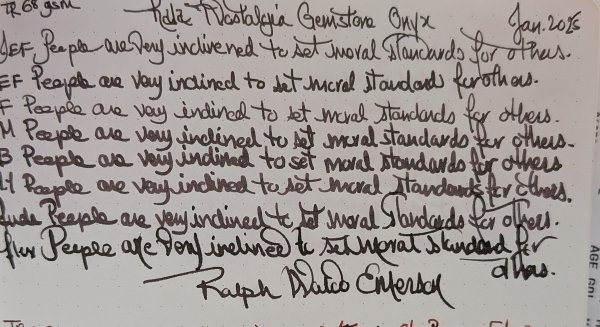 TR 68 gsm Nostalgia Gemstone Onyx Jan. 2025
JEF People are very inclined to set moral standards for others.
EF People are very inclined to set moral standards for others.
F People are very inclined to set moral standards for others.
M People are very inclined to set moral standards for others.
B People are very inclined to set moral standards for others
People are very inclined to set moral standards for others.
Jude People are very inclined to set moral standards for others.
flex People are very inclined to set moral standard for
others.
Ralph Waldo Emerson